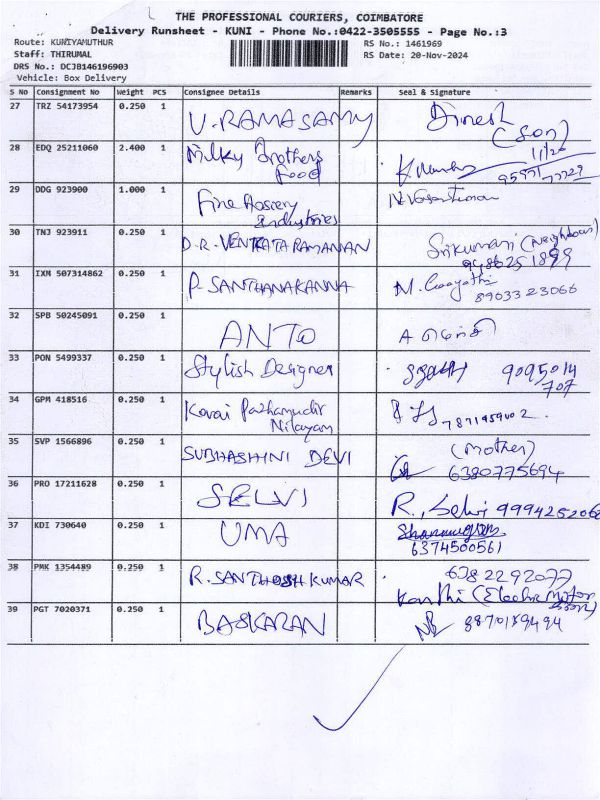 THE PROFESSIONAL COURIERS, COIMBATORE
Delivery Runsheet - KUNI - Phone No.:0422-3505555 - Page No.:3
Route: KUNIYAMUTHUR RS No.: 1461969
Staff: THIRUMAL RS Date: 20-Nov-2024
DRS No.: DCJB146196903
Vehicle: Box Delivery
S No Consignment No Weight PCS Consignee Details Remarks Seal & Signature
27 TRZ 54173954 0.250 1 V. RAMASAMY Dinesh
(Son)
28 EDQ 25211060 2.400 1 Milky Brothers
Food
29 DDG 923900 1.000 1 Fine Hosiery
Industries
30 TNJ 923911 0.250 1 D.R. VENKATA RAMANAN Srikumari (Neighbour)
31 IXM 507314862 0.250 1 P. SANTHANAKANNA M. Gayathri
89033 23066
32 SPB 50245091 0.250 1 ANTO
33 PON 5499337 0.250 1 Stylish Designer 9095014
707
34 GPM 418516 0.250 1 Kovai Pazhamudir
Nilayam
35 SVP 1566896 0.250 1 SUBHASHINI DEVI (mother)
6380775694
36 PRO 17211628 0.250 1 SELVI R. Selvi 9994252068
37 KDI 730640 0.250 1 UMA Shanmugam
6374500561
38 PMK 1354489 0.250 1 R. SANTHOSH KUMAR 6382292077
(Electric motor
39 PGT 7020371 0.250 1 BASKARAN